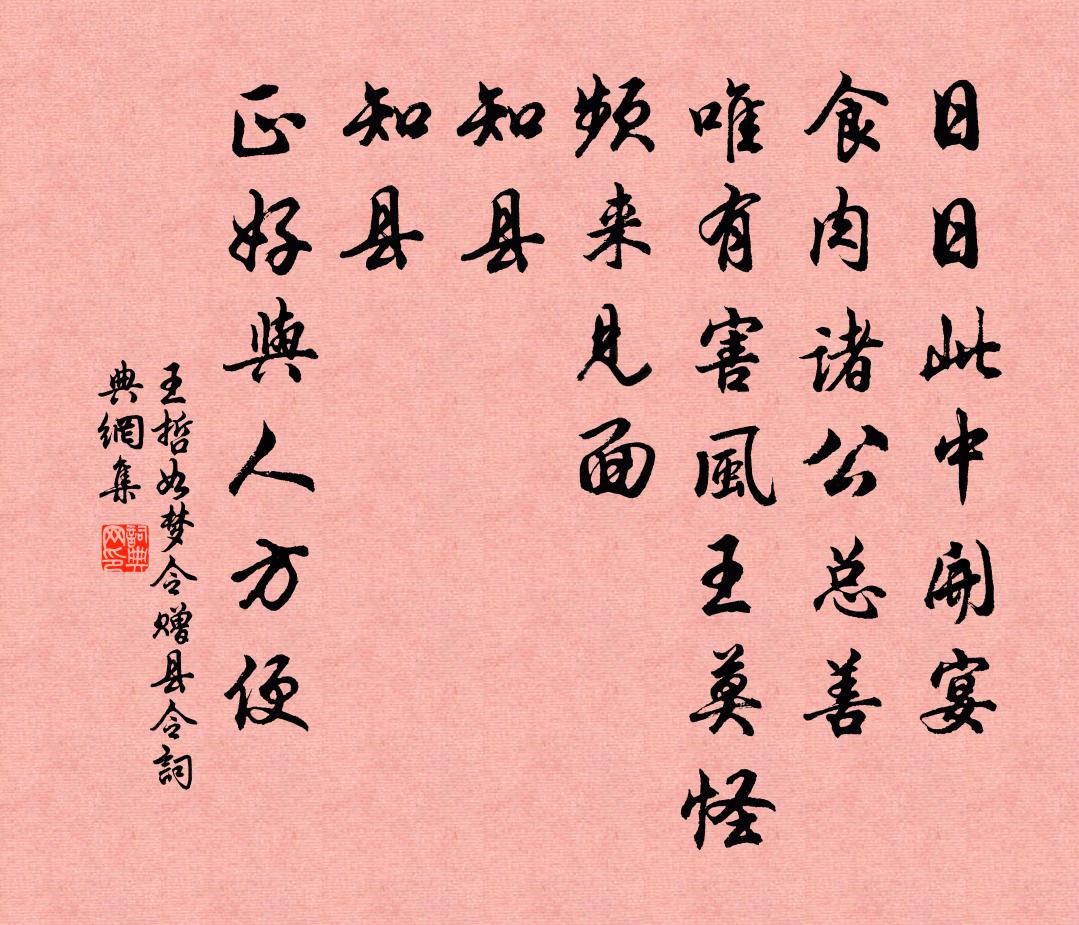 日日此中開宴
食肉諸公总善
唯有害風王莫怪
频来見面
知县
知县
正好與人方便
王哲如梦令赠县令詞
典網集
詞典网印